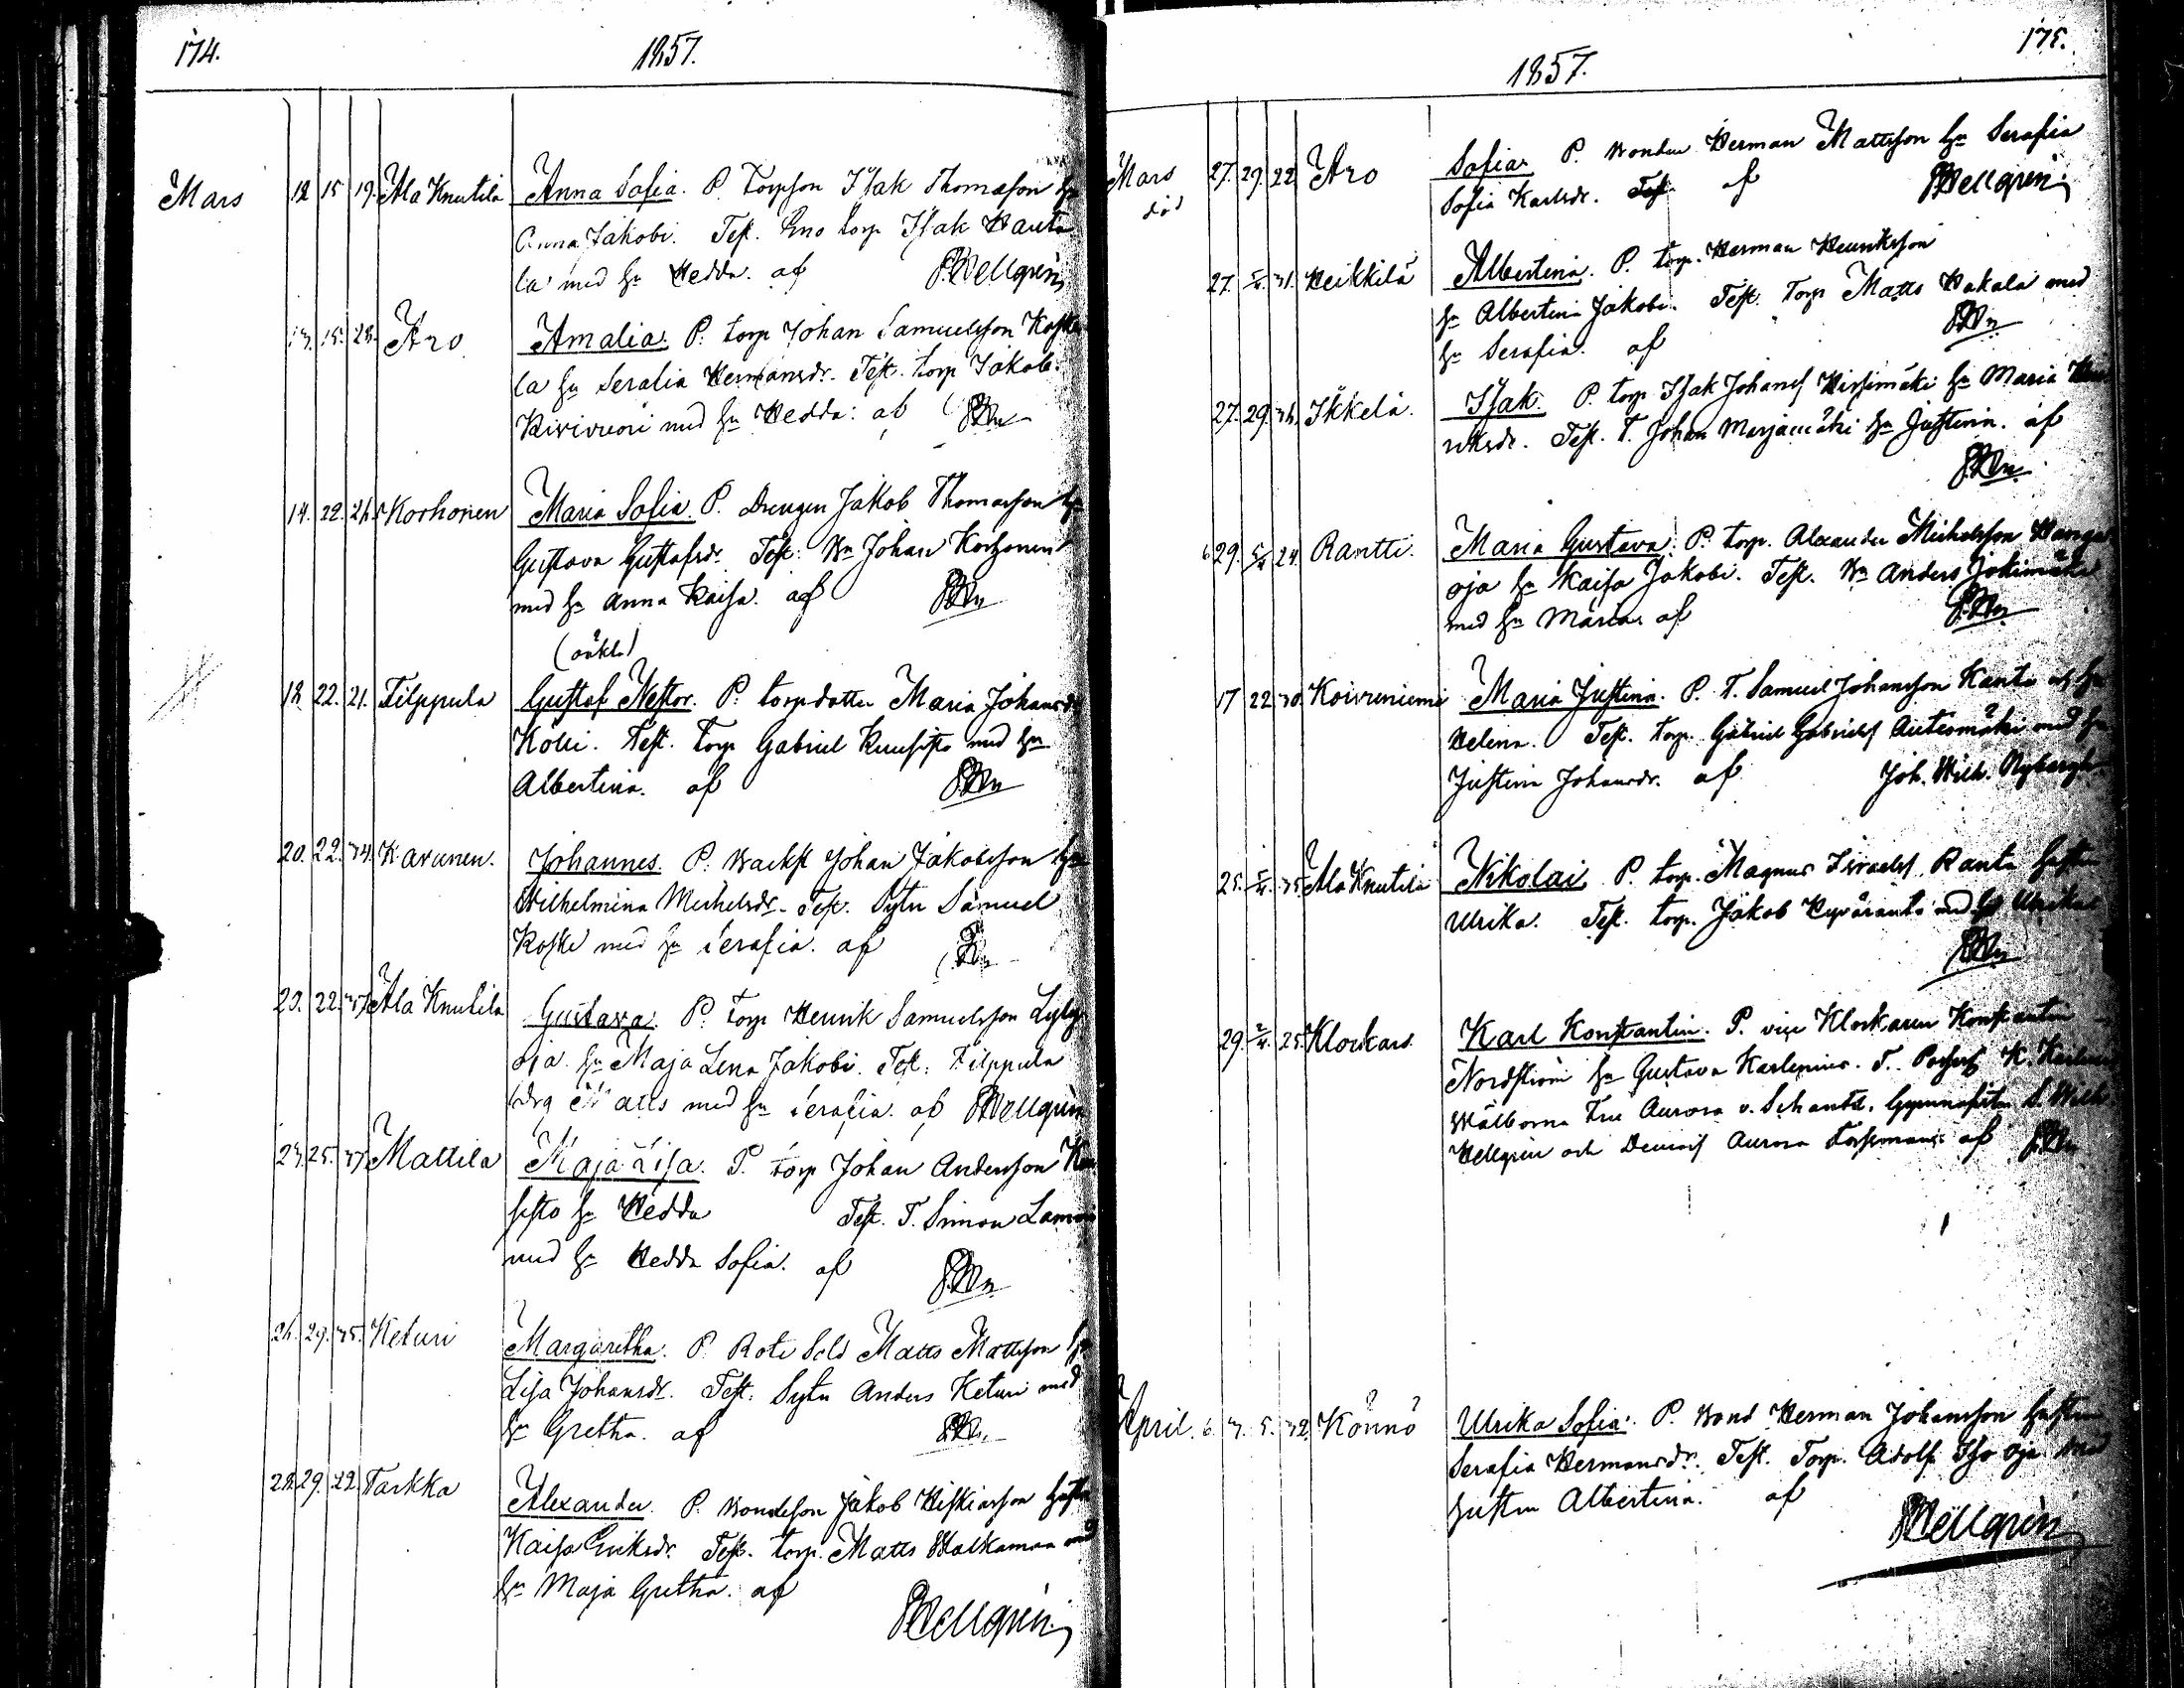 174.
1857.
Mars 12 15 19. Ala Knutila Anna Sofia. P. Torpson Isak Thomasson hu
Anna Jakobi. Test. Eno torp Isak Hauta
la med hu Hedda. af PWellgrén
13. 15. 28. Aro Amalia. P. torp Johan Samuelsson Koske
la hu Serafia Hermansdr. Test. torp Jakob
Kivivuori med hu Hedda: af
14. 22. 26. Korhonen Maria Sofia. P. Drengen Jakob Thomasson hu
Gustava Gustafsdr. Test: Bn Johan Korhonen
med hu Anna Kaisa. af
(oäkta)
18. 22. 21. Filppula Gustaf Nestor. P. torpdotter Maria Johansdr
Kolli. Test. torp Gabriel Kuusisto med hu
Albertina. af
20. 22. 34. Karunen. Johannes. P. Backst Johan Jakobsson hu
Wilhelmina Michelsdr. Test. Sytn Samuel
Koski med hu Serafia. af
20. 22. 37. Ala Knutila Gustava. P. torp Henrik Samuelsson Lyly
oja hu Maja Lena Jakobi. Test: Filppula
drg Matts med hu Serafia. af PWellgrén
23. 25. 37. Mattila Maja Lisa. P. torp Johan Andersson Kuu
sisto hu Hedda Test. T. Simon
med hu Hedda Sofia. af
26. 29. 35. Keturi Margaretha. P. Rote Sold Matts Mattsson hu
Lisa Johansdr. Test: Sytn Anders Keturi med
hu Gretha. af
28. 29. 22. Tarkka Alexander. P. Bondeson Jakob Hiskiasson hustru
Kaisa Eriksdr. Test. torp. Matts Walkamaa med
hu Maja Gretha. af
PWellgrén
175.
1857.
Mars 27. 29. 22 Aro Sofia. P. Bonden Herman Mattsson hu Serafia
död Sofia Karlsdr. Test af PWellgrén
27. 5/4. 31. Heikkilä Albertina. P. torp. Herman Henriksson
hu Albertina Jakobi. Test. torp Matts Hakala med
hu Serafia. af
27. 29. 36. Ikkelä. Isak. P. torp Isak Johans Hirsimäki hu Maria Hen
riksdr. Test. T. Johan Marjamäki hu Justina. af
29. 5/4 24. Rantti. Maria Gustava. P. torp. Alexander Michelsson Hanga
oja hu Kaisa Jakobi. Test. Bn Anders Jokimäki
med hu Maria af
17 22 30. Koivuniemi Maria Justina. P. T. Samuel Johansson Kanta och hu
Helena. Test. torp. Gabriel Gabriels Autiomäki med hu
Justina Johansdr. af Joh. Wilh. Nybergh
25. 5/4. 35. Ala Knutila Nikolai. P. torp. Magnus Israels Ranta hustru
Ulrika. Test. torp. Jakob Hyväranta med hu Ulrika
29. 2/4. 25. Klockars Karl Konstantin. P. vice Klockaren Konstantin
Nordström hu Gustava Karlenius. T. K. Karlenius
Wälborna Fru Aurora v. Schantz, Gymnasisten S. Wilh.
Wellgrén och Demois Aurora Forssman. af
April. 3. 5. 32. Könnö Ulrika Sofia. P. Bond Herman Johansson hustru
Serafia Hermansdr. Test. Torp. Adolf Iso oja med
hustru Albertina. af
PWellgrén